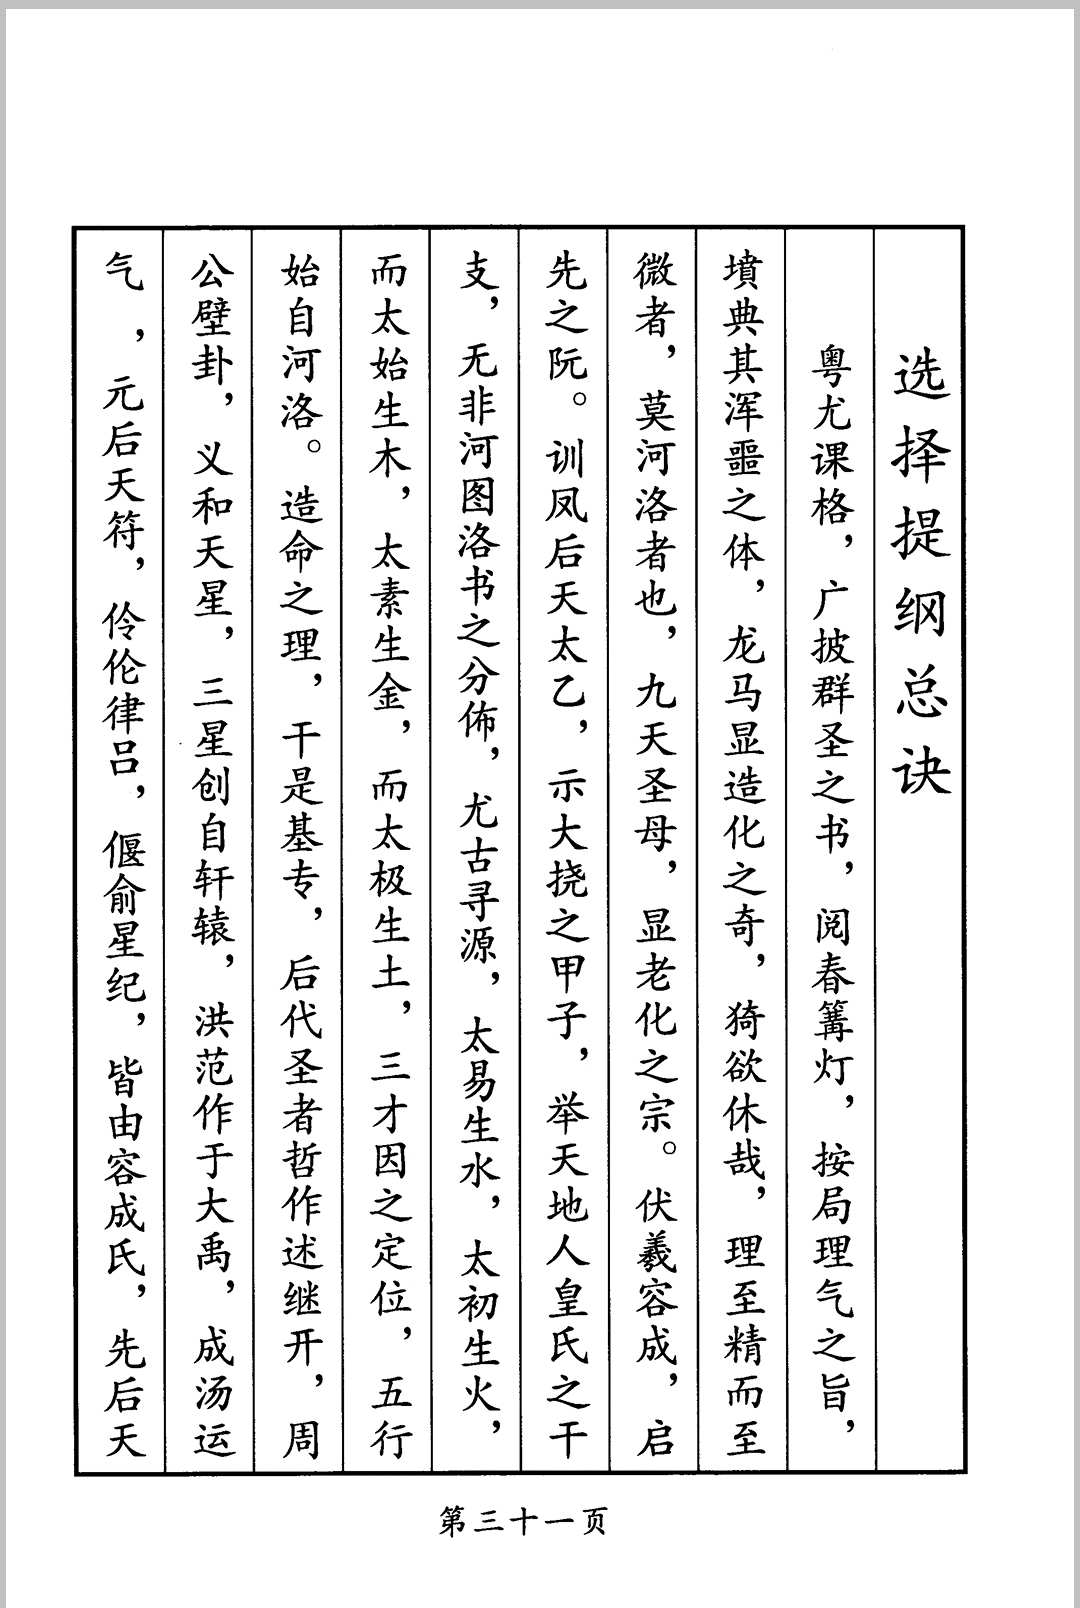 选择提纲总诀
粤尤课格，广披群圣之书，阅春篝灯，按局理气之旨，
墳典其浑噩之体，龙马显造化之奇，猗欲休哉，理至精而至
微者，莫河洛者也，九天圣母，显老化之宗。伏羲容成，启
先之阮。训凤后天太乙，示大挠之甲子，举天地人皇氏之干
支，无非河图洛书之分佈，尤古寻源，太易生水，太初生火，
而太始生木，太素生金，而太极生土，三才因之定位，五行
始自河洛。造命之理，干是基专，后代圣者哲作述继开，周
公壁卦，义和天星，三星创自轩辕，洪范作于大禹，成汤运
气，元后天符，伶伦律吕，偃俞星纪，皆由容成氏，先后天
第三十一页